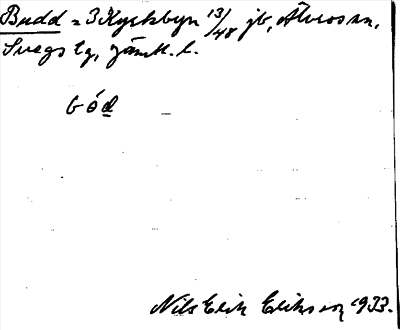 Budd = 3 Kyrkbyn 13/48 jb, Älvros sn,
Svegs tg, Jämtl. l.
bód
Nils Erik Eriksson 1933.